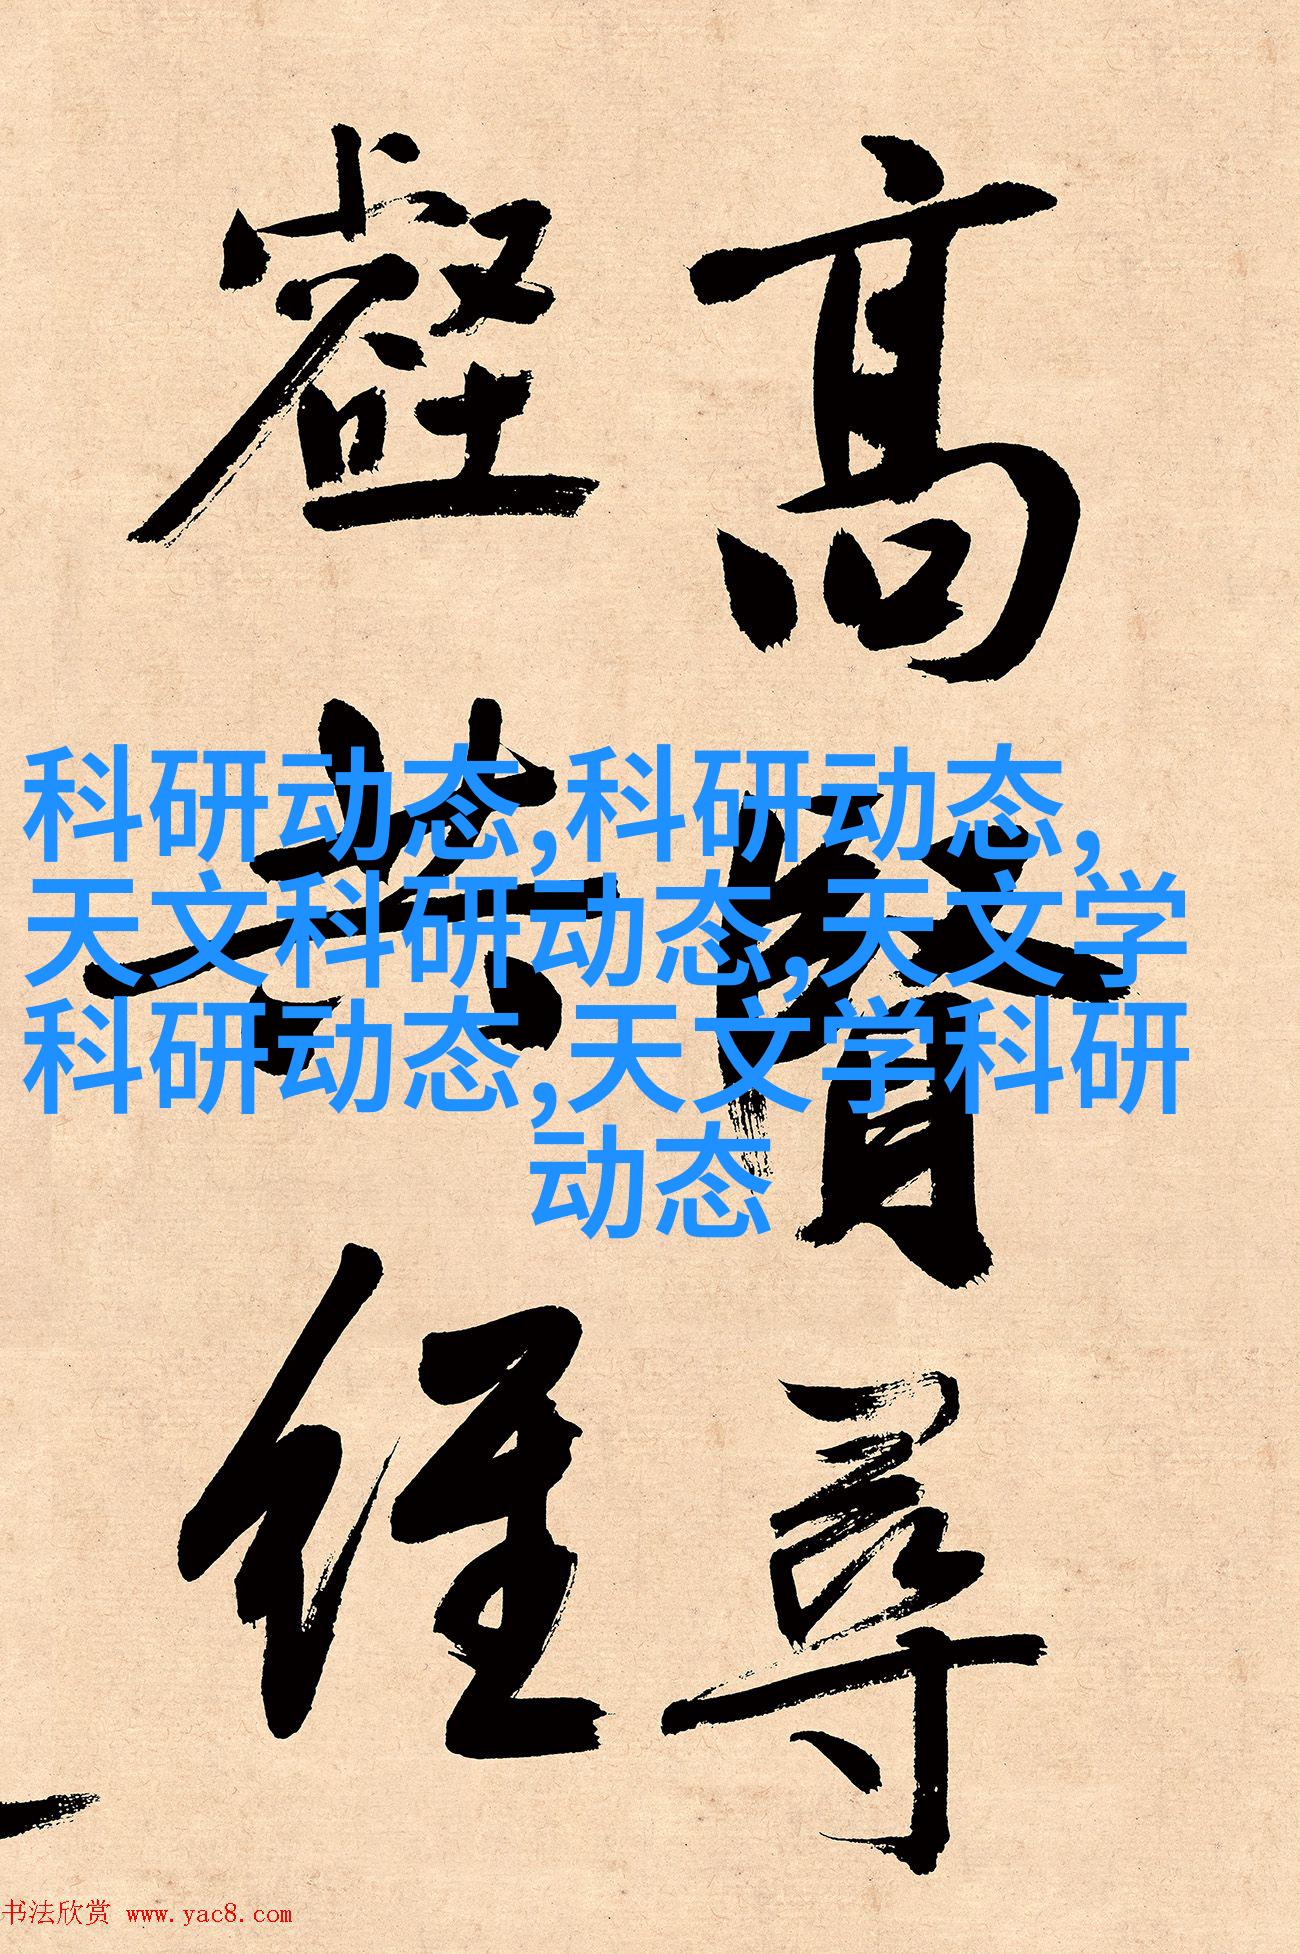 高賢尋
壑共經
科研动态,科研动态,
天文科研动态,天文学
科研动态,天文学科研
动态
书法欣赏 www.yac8.com